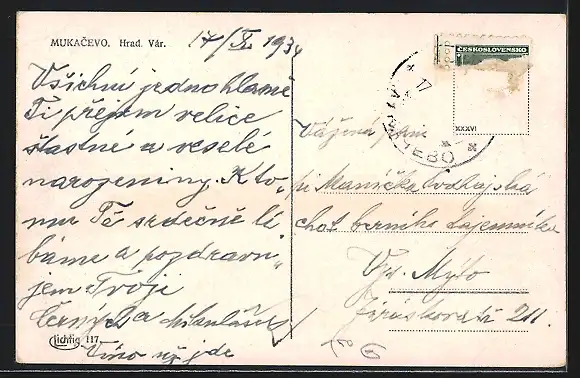 MUKAČEVO. Hrad. Vár.
17/X. 1934
Všichni jednohlasně
Ti přejem velice
šťastné a veselé
narozeniny. K to-
mu Tě srdečně lí
báme a pozdravu-
jem Tvoji
a Mikulášek
Víno už jde
Lichtig 117
ČESKOSLOVENSKO
17
XXXVI
Vážená paní
pí Manička
choť berního tajemníka
Vys. Mýto
Jiráskova tř. 211.